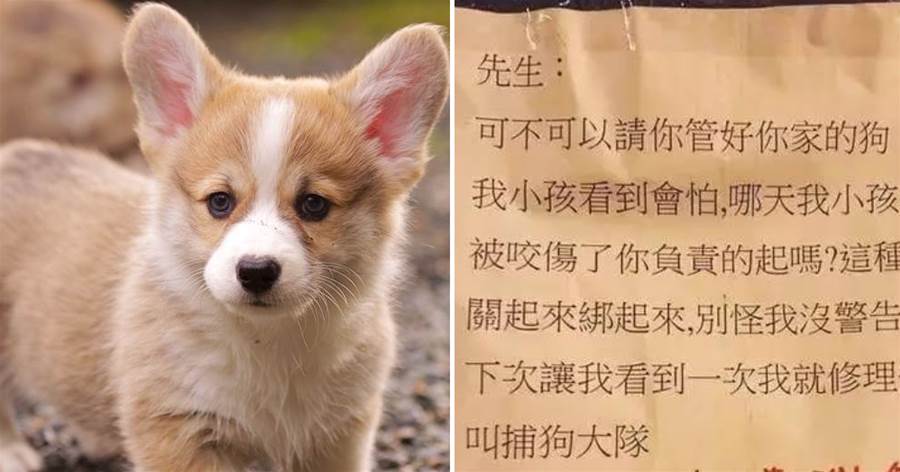 先生：
可不可以請你管好你家的狗
我小孩看到會怕,哪天我小孩
被咬傷了你負責的起嗎?這種
關起來綁起來,別怪我沒警告
下次讓我看到一次我就修理
叫捕狗大隊